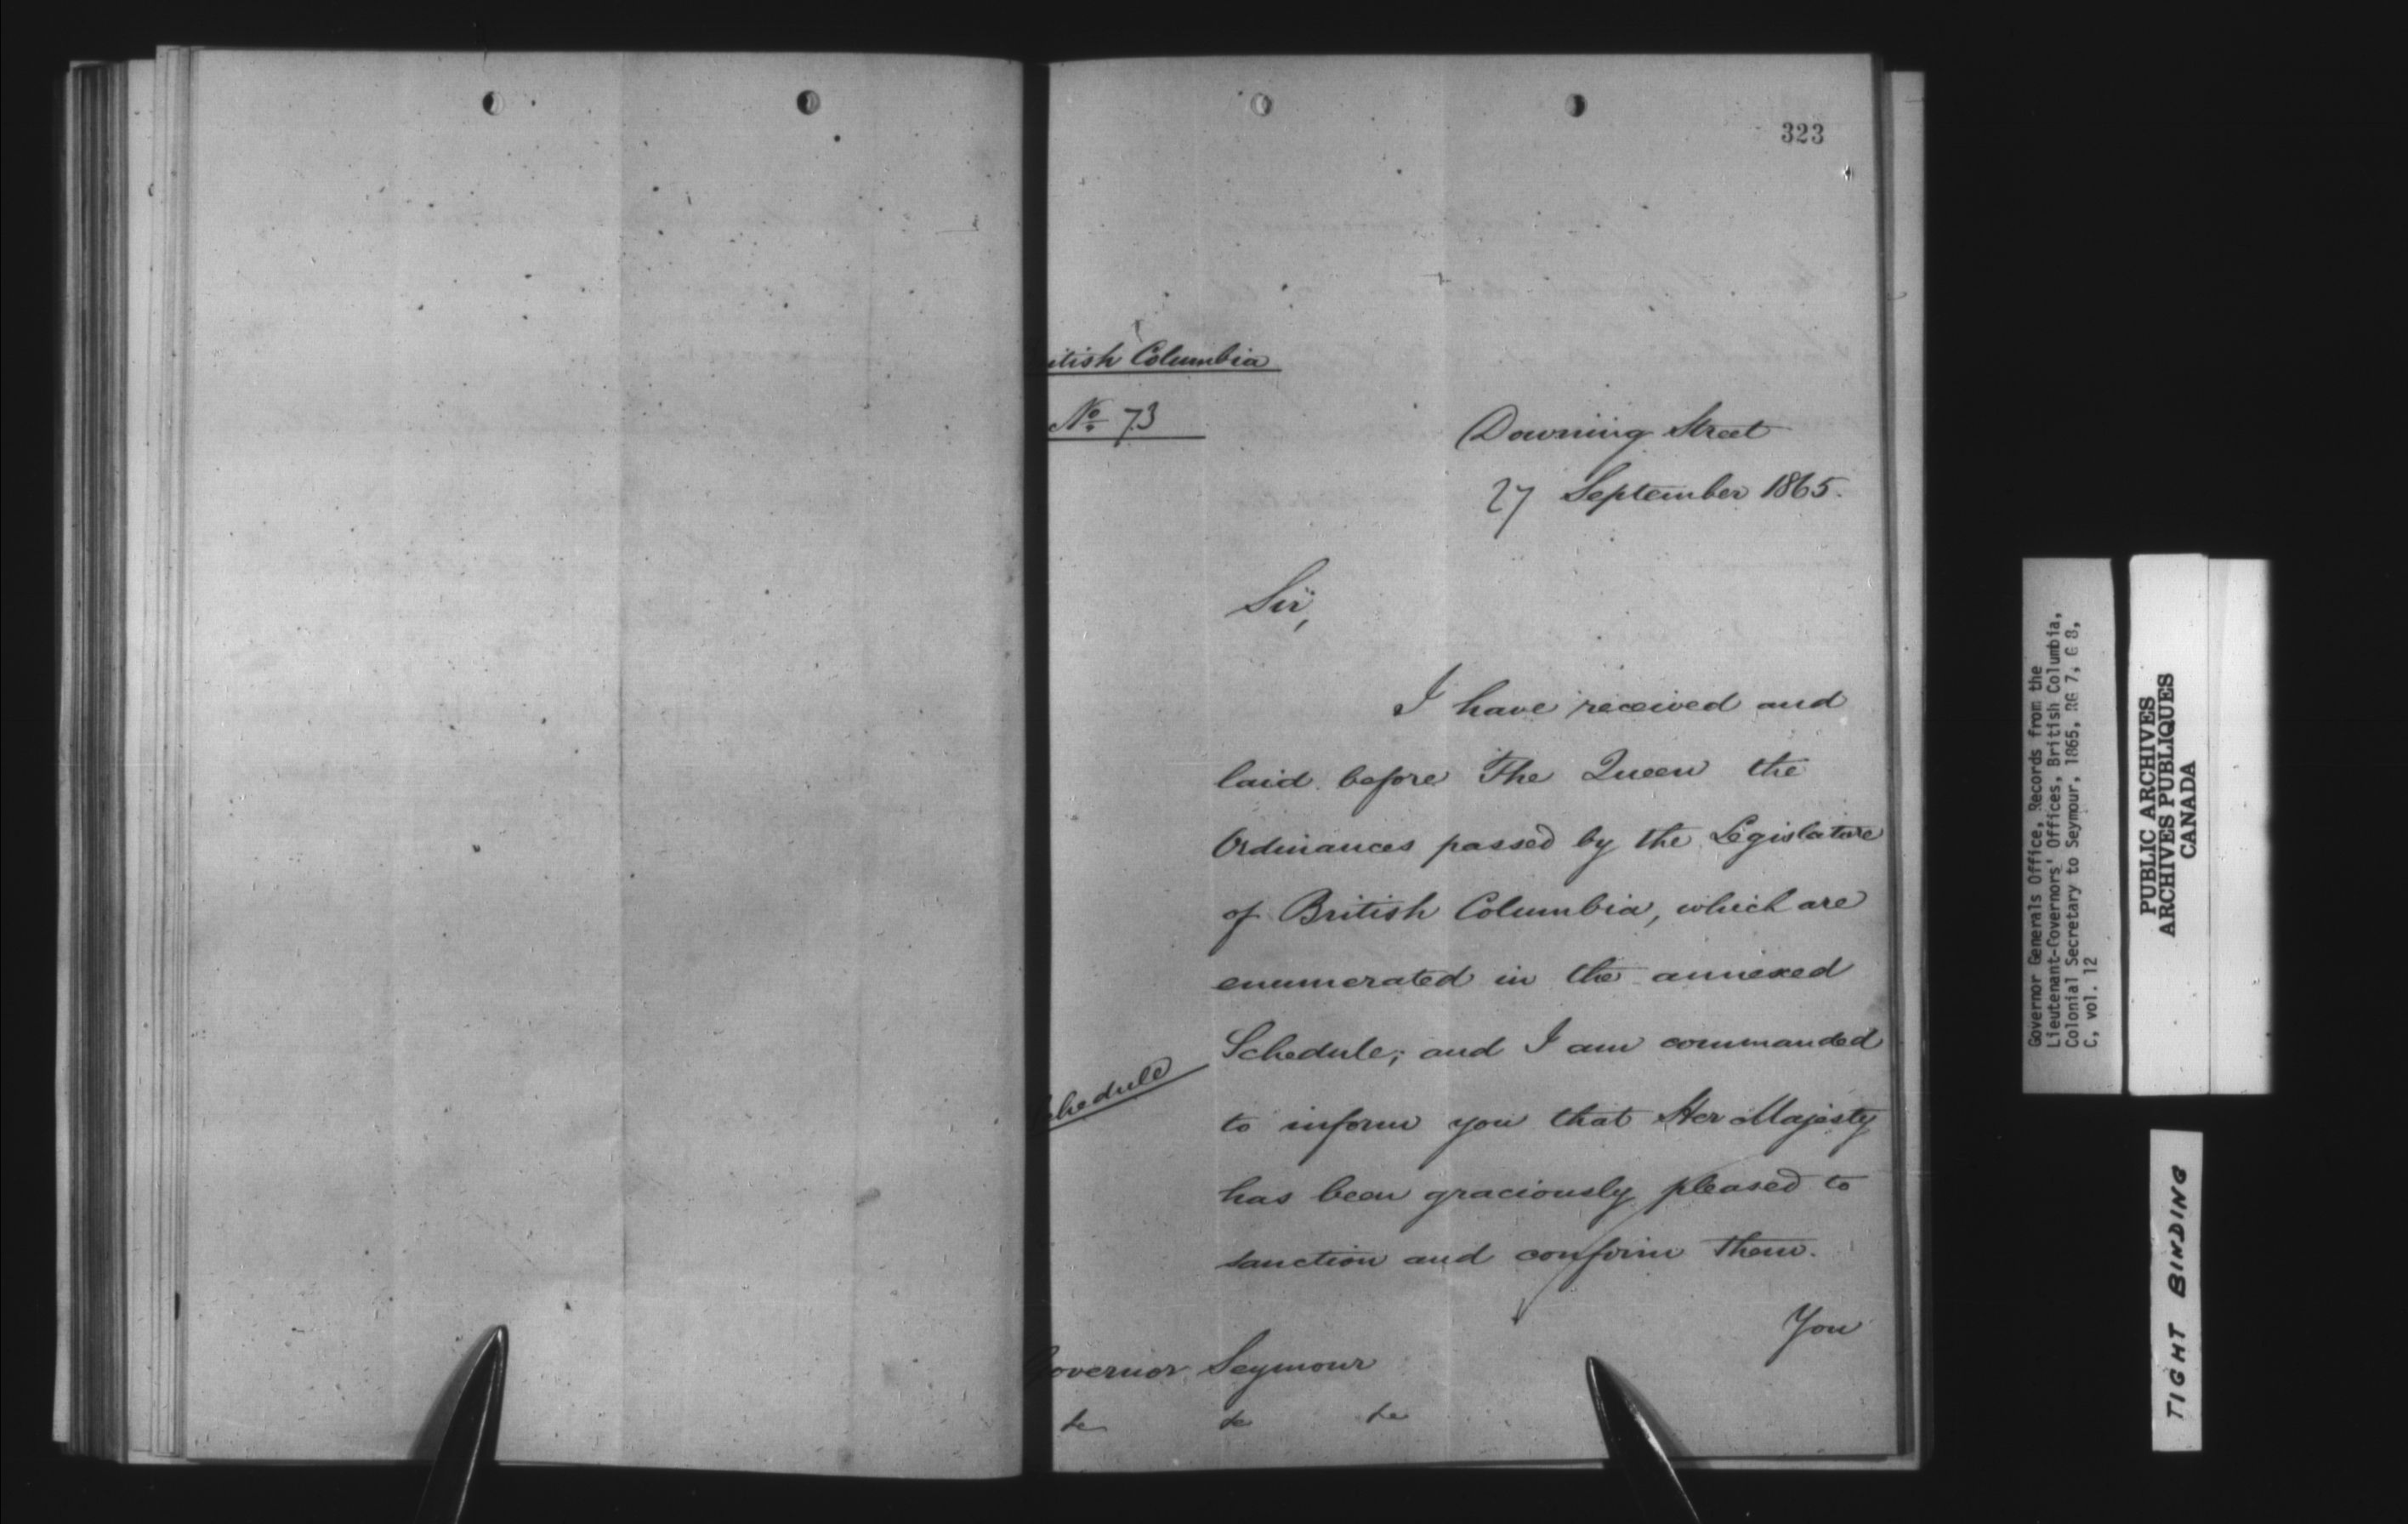 323
itish Columbia
No. 73
Downing Street
27 September 1865.
Sir,
I have received and
laid before The Queen the
Ordinances passed by the Legislature
of British Columbia, which are
enumerated in the annexed
Schedule; and I am commanded
chedule
to inform you that Her Majesty
has been graciously pleased to
sanction and confirm them.
You
overnor Seymour
&c &c &c
Governor Generals Office, Records from the
Lieutenant-Governors' Offices, British Columbia,
Colonial Secretary to Seymour, 1865, RG 7, G 8,
C, vol. 12
PUBLIC ARCHIVES
ARCHIVES PUBLIQUES
CANADA
TIGHT BINDING